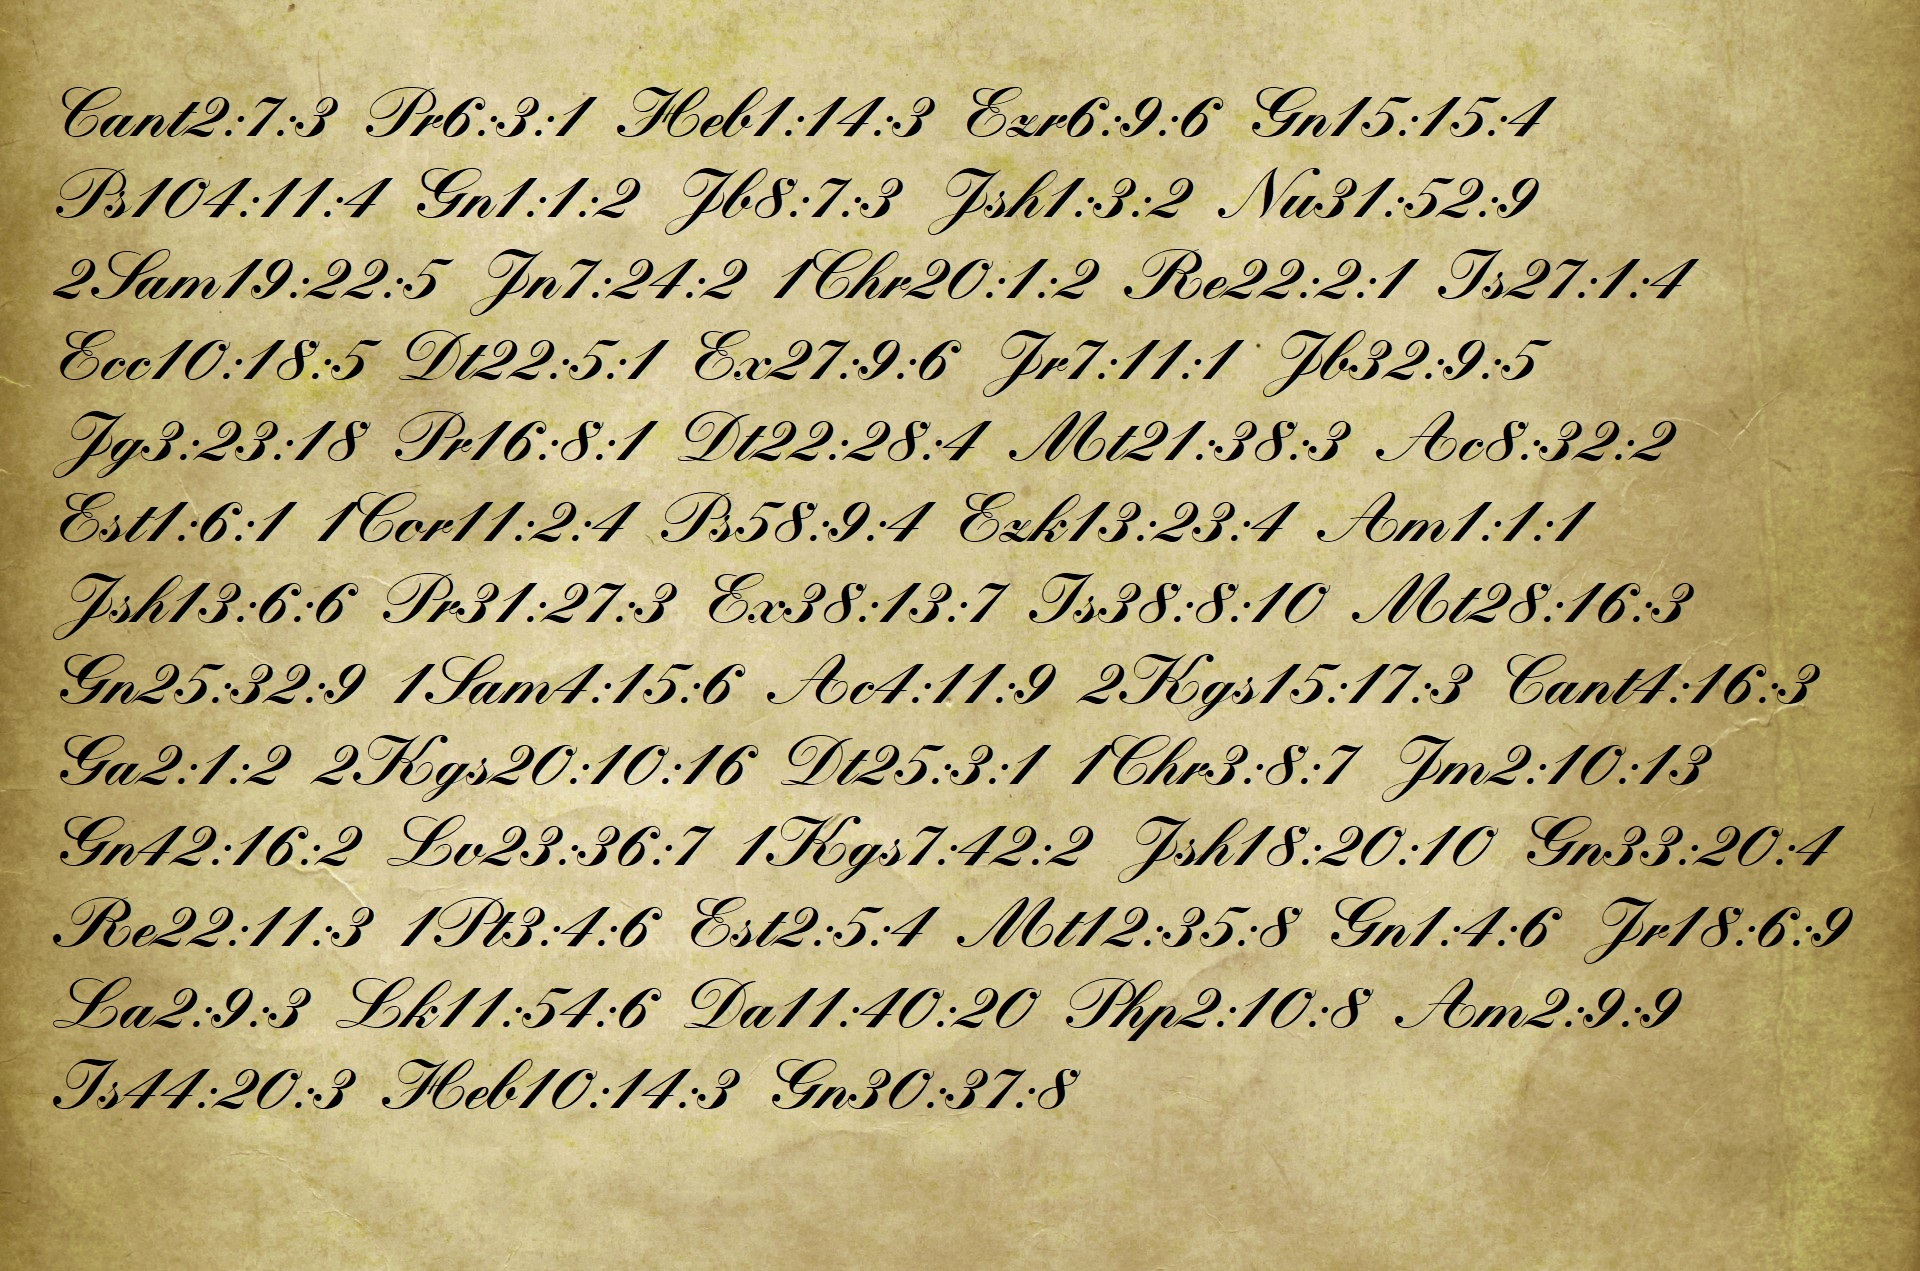 Cant2:7:3 Pr6:3:1 Heb1:14:3 Ezr6:9:6 Gn15:15:4
Ps104:11:4 Gn1:1:2 Jb8:7:3 Jsh1:3:2 Nu31:52:9
2Sam19:22:5 Jn7:24:2 1Chr20:1:2 Re22:2:1 Is27:1:4
Ecc10:18:5 Dt22:5:1 Ex27:9:6 Jr7:11:1 Jb32:9:5
Jg3:23:18 Pr16:8:1 Dt22:28:4 Mt21:38:3 Ac8:32:2
Est1:6:1 1Cor11:2:4 Ps58:9:4 Ezk13:23:4 Am1:1:1
Jsh13:6:6 Pr31:27:3 Ex38:13:7 Is38:8:10 Mt28:16:3
Gn25:32:9 1Sam4:15:6 Ac4:11:9 2Kgs15:17:3 Cant4:16:3
Ga2:1:2 2Kgs20:10:16 Dt25:3:1 1Chr3:8:7 Jm2:10:13
Gn42:16:2 Lv23:36:7 1Kgs7:42:2 Jsh18:20:10 Gn33:20:4
Re22:11:3 1Pt3:4:6 Est2:5:4 Mt12:35:8 Gn1:4:6 Jr18:6:9
La2:9:3 Lk11:54:6 Da11:40:20 Php2:10:8 Am2:9:9
Is44:20:3 Heb10:14:3 Gn30:37:8